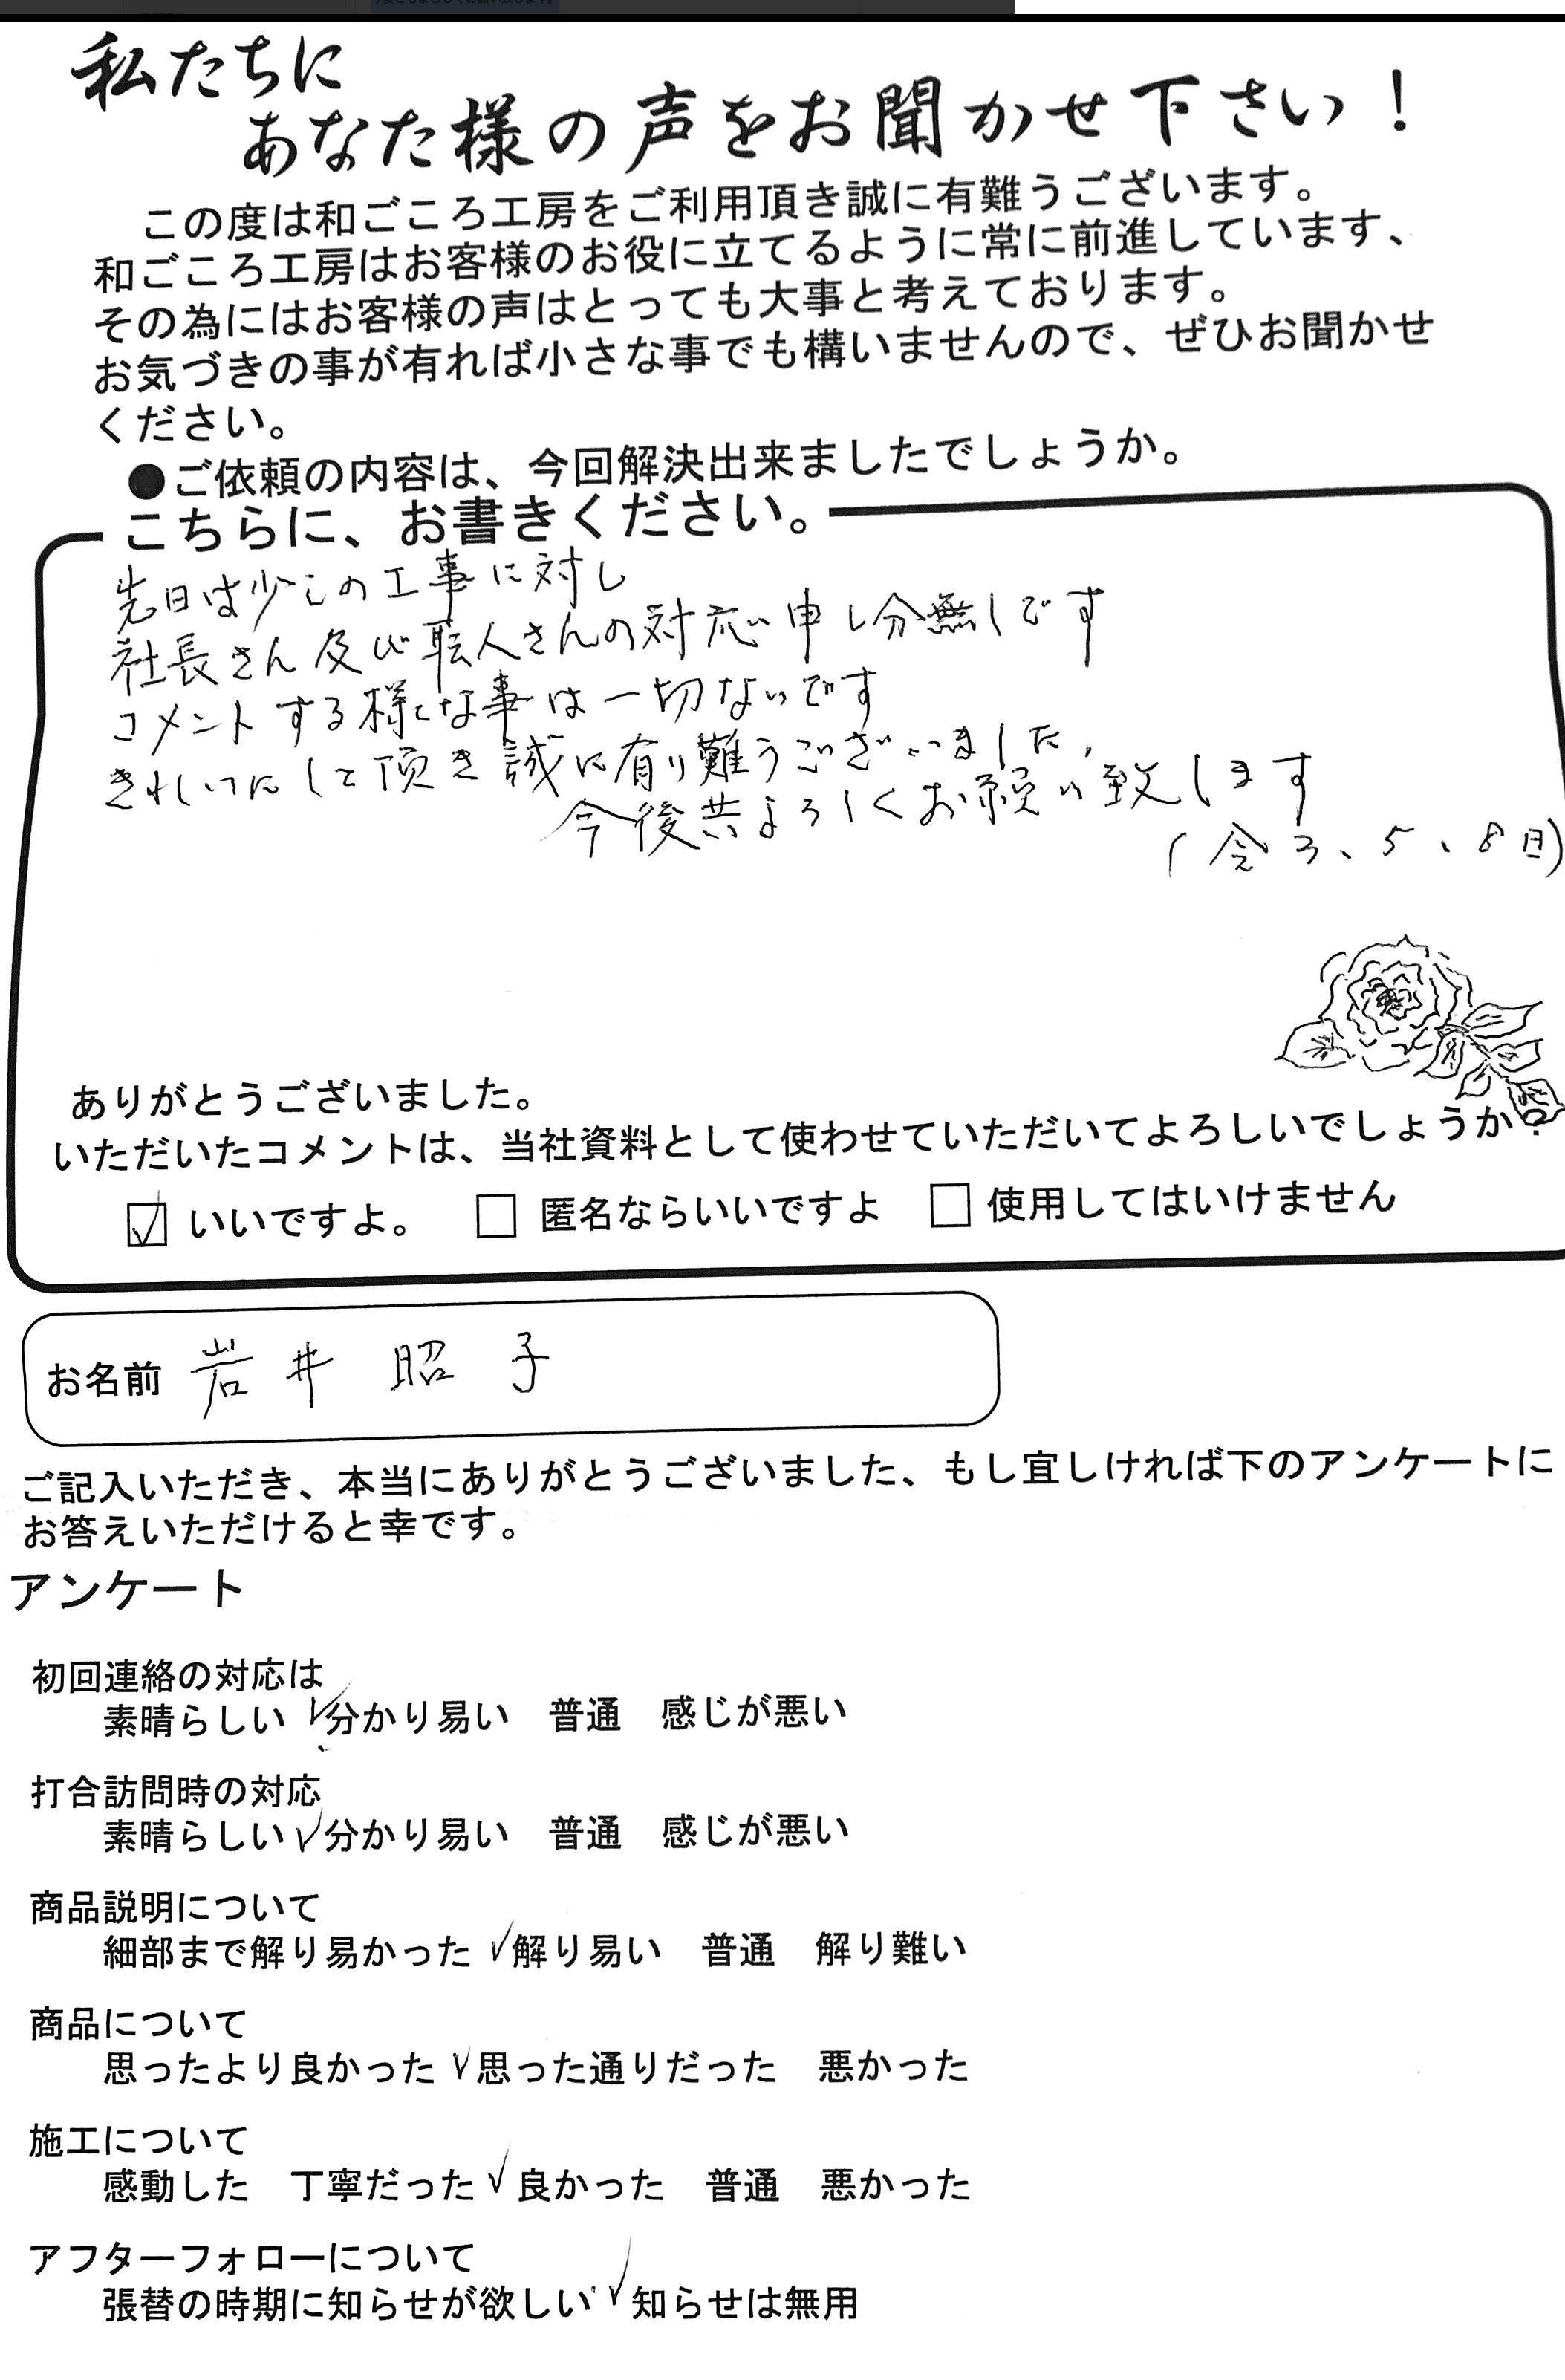 私たちに
あなた様の声をお聞かせ下さい!
この度は和ごころ工房をご利用頂き誠に有難うございます。
和ごころ工房はお客様のお役に立てるように常に前進しています、
その為にはお客様の声はとっても大事と考えております。
お気づきの事が有れば小さな事でも構いませんので、ぜひお聞かせ
ください。
●ご依頼の内容は、今回解決出来ましたでしょうか。
こちらに、お書きください。
先日は少しの工事に対し
社長さん及び職人さんの対応申し分無しです
コメントする様な事は一切ないです
きれいにして頂き誠に有り難うございました、
今後共よろしくお願い致します
(令3、5、8日)
ありがとうございました。
いただいたコメントは、当社資料として使わせていただいてよろしいでしょうか?
☑ いいですよ。 □ 匿名ならいいですよ □ 使用してはいけません
お名前 岩井 昭子
ご記入いただき、本当にありがとうございました、もし宜しければ下のアンケートに
お答えいただけると幸です。
アンケート
初回連絡の対応は
素晴らしい ✓分かり易い 普通 感じが悪い
打合訪問時の対応
素晴らしい ✓分かり易い 普通 感じが悪い
商品説明について
細部まで解り易かった ✓解り易い 普通 解り難い
商品について
思ったより良かった ✓思った通りだった 悪かった
施工について
感動した 丁寧だった ✓良かった 普通 悪かった
アフターフォローについて
張替の時期に知らせが欲しい ✓知らせは無用